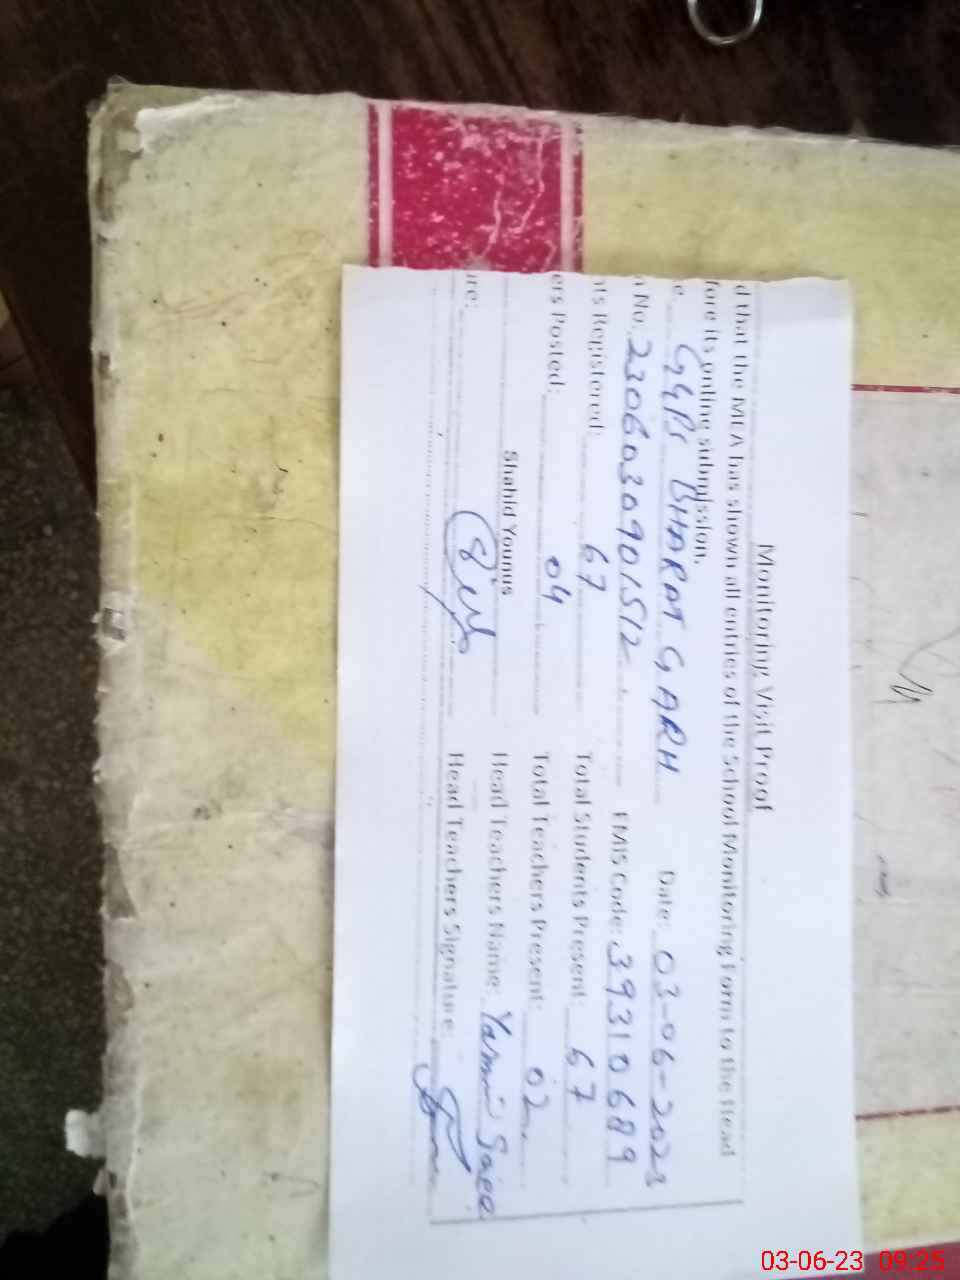 Monitoring Visit Proof
d that the MEA has shown all entries of the School Monitoring Form to the Head
fore its online submission.
e: GGPS BHARAT GARH Date: 03-06-2023
n No. 2306030901512 EMIS Code: 39310689
nts Registered: 67 Total Students Present: 67
ers Posted: 04 Total Teachers Present: 02
Shahid Younus Head Teachers Name:
ure: Head Teachers Signature:
03-06-23 09:25